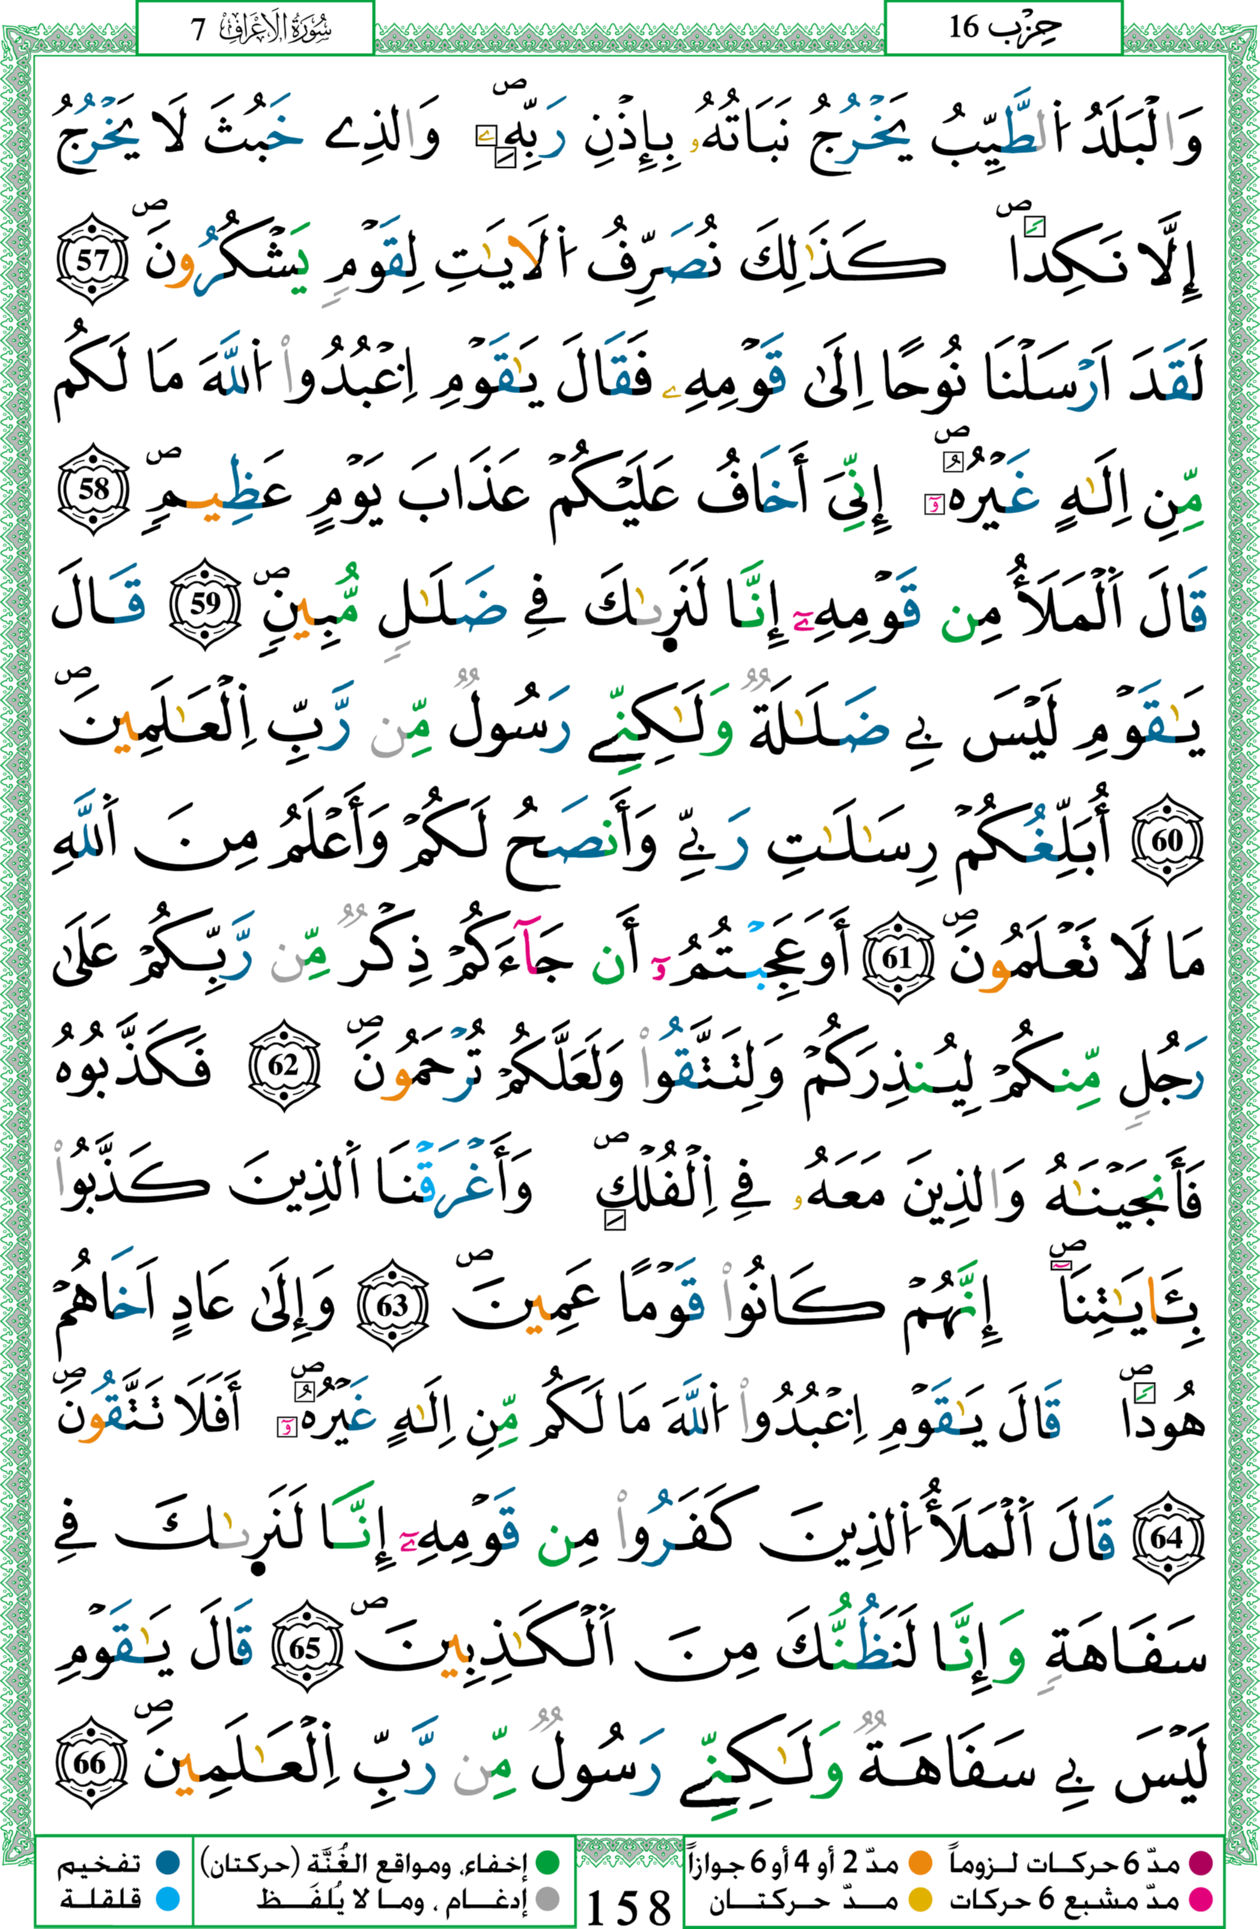 حِزْب 16
سُورَةُ الْأَعْرَافِ 7
وَالْبَلَدُ اُ۬لطَّيِّبُ يَخْرُجُ نَبَاتُهُۥ بِإِذْنِ رَبِّهِۦۖ وَالذِے خَبُثَ لَا يَخْرُجُ
إِلَّا نَكِداٗۖ كَذَٰلِكَ نُصَرِّفُ اُ۬لَايَٰتِ لِقَوْمٖ يَشْكُرُونَۖ 57
لَقَدَ اَرْسَلْنَا نُوحًا اِلَىٰ قَوْمِهِۦ فَقَالَ يَٰقَوْمِ اِ۟عْبُدُواْ اُ۬للَّهَ مَا لَكُم
مِّنِ اِلَٰهٍ غَيْرُهُۥٓۖ إِنِّيَ أَخَافُ عَلَيْكُمْ عَذَابَ يَوْمٍ عَظِيمٖۖ 58
قَالَ اَ۬لْمَلَأُ مِن قَوْمِهِۦٓ إِنَّا لَنَر۪ىٰكَ فِے ضَلَٰلٖ مُّبِينٖۖ 59 قَالَ
يَٰقَوْمِ لَيْسَ بِے ضَلَٰلَةٞ وَلَٰكِنِّے رَسُولٞ مِّن رَّبِّ اِ۬لْعَٰلَمِينَۖ
60 أُبَلِّغُكُمْ رِسَٰلَٰتِ رَبِّي وَأَنصَحُ لَكُمْ وَأَعْلَمُ مِنَ اَ۬للَّهِ
مَا لَا تَعْلَمُونَۖ 61 أَوَعَجِبْتُمُۥٓ أَن جَآءَكُمْ ذِكْرٞ مِّن رَّبِّكُمْ عَلَىٰ
رَجُلٖ مِّنكُمْ لِيُنذِرَكُمْ وَلِتَتَّقُواْ وَلَعَلَّكُمْ تُرْحَمُونَۖ 62 فَكَذَّبُوهُ
فَأَنجَيْنَٰهُ وَالذِينَ مَعَهُۥ فِے اِ۬لْفُلْكِۖ وَأَغْرَقْنَا اَ۬لذِينَ كَذَّبُواْ
بِـَٔايَٰتِنَآۖ إِنَّهُمْ كَانُواْ قَوْمًا عَمِينَۖ 63 وَإِلَىٰ عَادٍ اَخَاهُمْ
هُوداٗۖ قَالَ يَٰقَوْمِ اِ۟عْبُدُواْ اُ۬للَّهَ مَا لَكُم مِّنِ اِلَٰهٍ غَيْرُهُۥٓۖ أَفَلَا تَتَّقُونَۖ
64 قَالَ اَ۬لْمَلَأُ اُ۬لذِينَ كَفَرُواْ مِن قَوْمِهِۦٓ إِنَّا لَنَر۪ىٰكَ فِے
سَفَاهَةٖ وَإِنَّا لَنَظُنُّكَ مِنَ اَ۬لْكَٰذِبِينَۖ 65 قَالَ يَٰقَوْمِ
لَيْسَ بِے سَفَاهَةٞ وَلَٰكِنِّے رَسُولٞ مِّن رَّبِّ اِ۬لْعَٰلَمِينَۖ 66
مدّ 6 حركات لـزوماً
مدّ 2 أو 4 أو 6 جوازاً
مدّ مشبع 6 حركات
مـــدّ حــركتـــان
158
إخفاء، ومواقع الغُنَّة (حركتان)
إدغــام ، ومـا لا يُلفَــظ
تفخيم
قلقلة